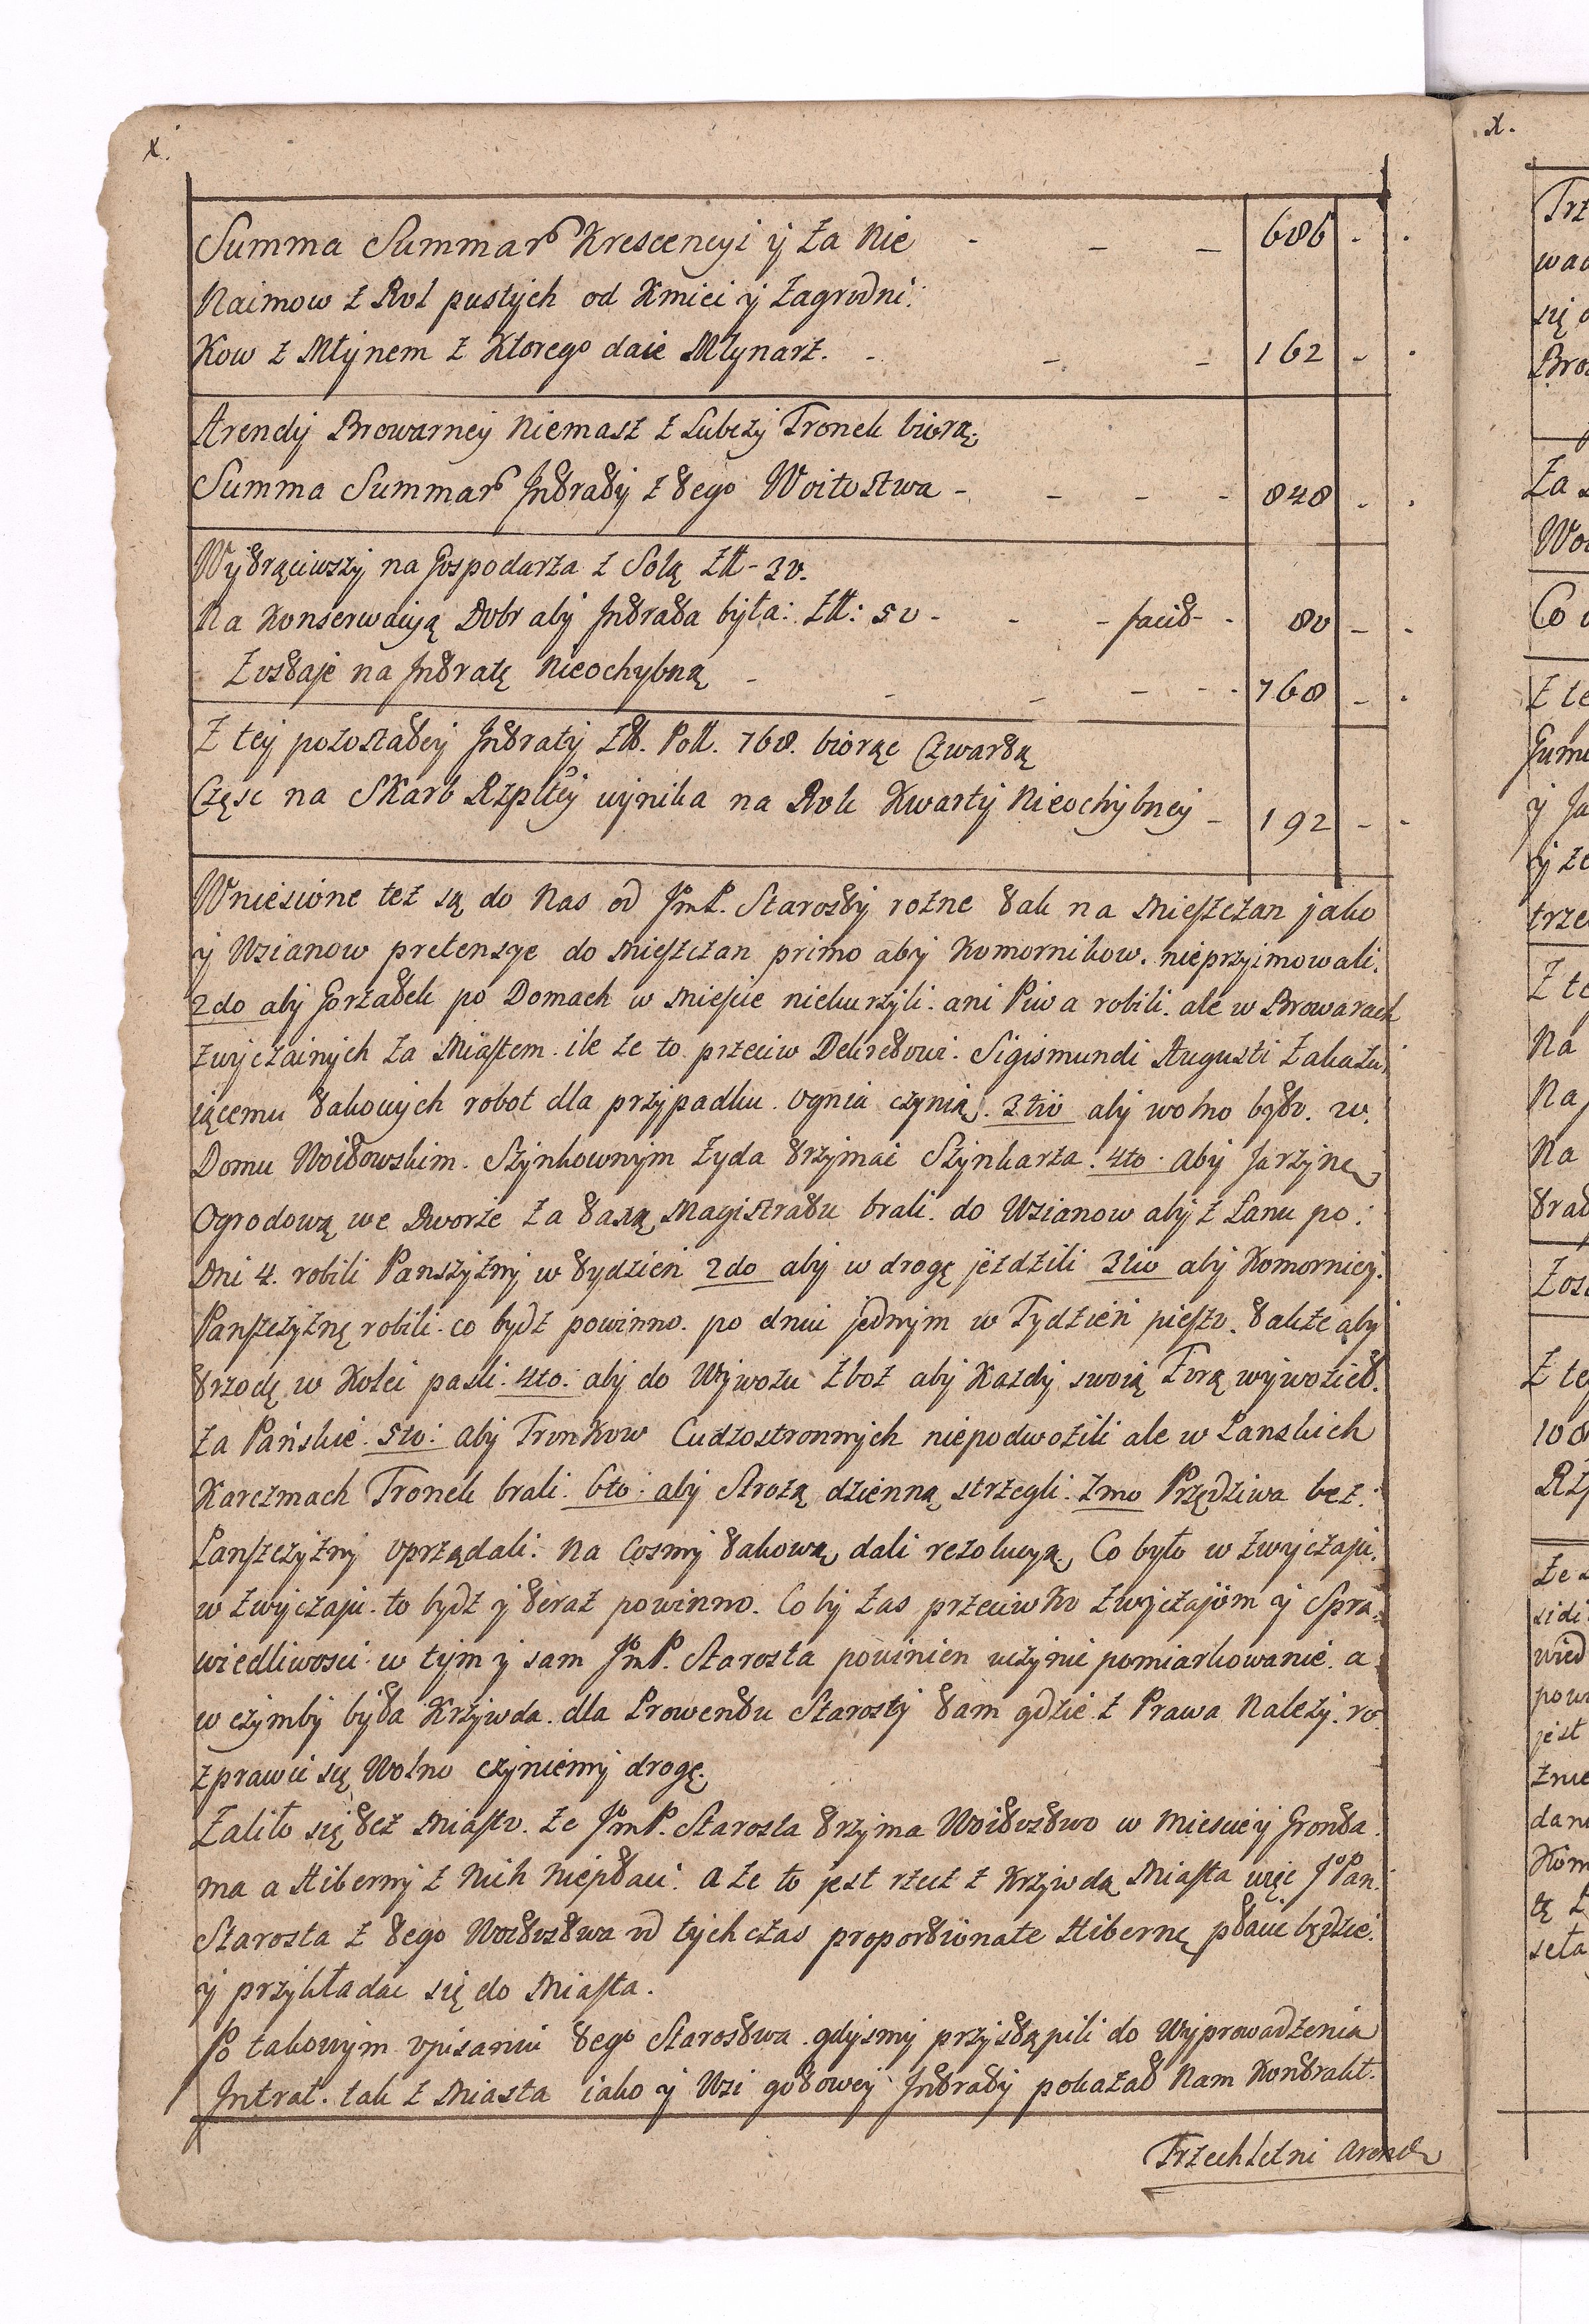 x.
Summa Summar Krescencyi y za Nie - - - 686 - -
Naimow z Rol pustych od Kmieci y Zagrodni:
Kow z Młynem z Ktorego daie Młynarz. - - - 162 - -
Arendy Browarney Niemasz z Lubczy Tronek biorą.
Summa Summar Intraty z tego Woitostwa - - - - 848 - -
Wytrąciwszy na Gospodarza z Solą Złł - 30.
Na Konserwacyą Dobr aby Intrata była: Złł: 50 - - - facit - - 80 - -
Zostaje na Intratę Nieochybną - - - - - - 768 - -
Z tey pozostałey Intraty Zł. Poll. 768. biorąc Czwartą
Częsc na Skarb Rzpltey wynika na Rok Kwarty Nieochybney - 192 - -
Wniesione tez są do Nas od JmP. Starosty rozne tak na Mieszczan jako
y Wsianow pretensye do Mieszczan primo aby Komornikow. nieprzyimowali.
2do aby Gorzałek po Domach w Mieście niekurzyli. ani Piwa robili. ale w Browarach
zwyczainych za Miastem. ile ze to przeciw Dekretowi. Sigismundi Augusti Zakazu:
iącemu takowych robot dla przypadku. Ognia czynią. 3tio aby wolno było. w.
Domu Woitowskim. Szynkownym Zyda trzymac Szynkarza. 4to. aby Jarzynę
Ogrodową we Dworze za taxą Magistratu brali. do Wsianow aby z Łanu po:
Dni 4. robili Panszyzny w tydzien 2do aby w drogę jezdzili 3tio aby Komornicy.
Panszczyznę robili. co bydz powinno. po dniu jednym w Tydzien pieszo. także aby
trzodę w Kolei pasli. 4to: aby do Wywozu zboz aby Kazdy swoią Forą wywoził.
za Pańskie. 5to: aby Tronkow Cudzostronnych niepodwozili ale w Panskich
Karczmach Tronek brali. 6to: aby Strozą dzienną strzegli. 7mo Przędziwa bez.
Panszczyzny oprządali. Na Cosmy takową dali rezolucyą. Co było w zwyczaju.
w zwyczaju. to bydz y teraz powinno. Co by zas przeciwko zwyczajom y Spra:
wiedliwosci. w tym y sam JmP. Starosta powinien uczynic pomiarkowanie. a
w czymby była Krzywda. dla Prowentu Starosty tam gdzie z Prawa Nalezy. ro
zprawic się Wolno czyniemy drogę.
Zaliło się tez Miasto. ze JmP. Starosta trzyma Woitostwo w Miescie y Gronta.
ma a Hiberny z Nich Niepłaci. a ze to jest rzecz z Krzywdą Miasta więc J Pan
Starosta z tego Woitostwa od tych czas proportionate Hibernę płacic będzie.
y przykładac się do Miasta.
Po takowym opisaniu tego Starostwa. gdysmy przystąpili do Wyprowadzenia
Intrat. tak z Miasta iako y Wsi gotowey Intraty pokazał Nam Kontrakt.
Trzechletni Arend